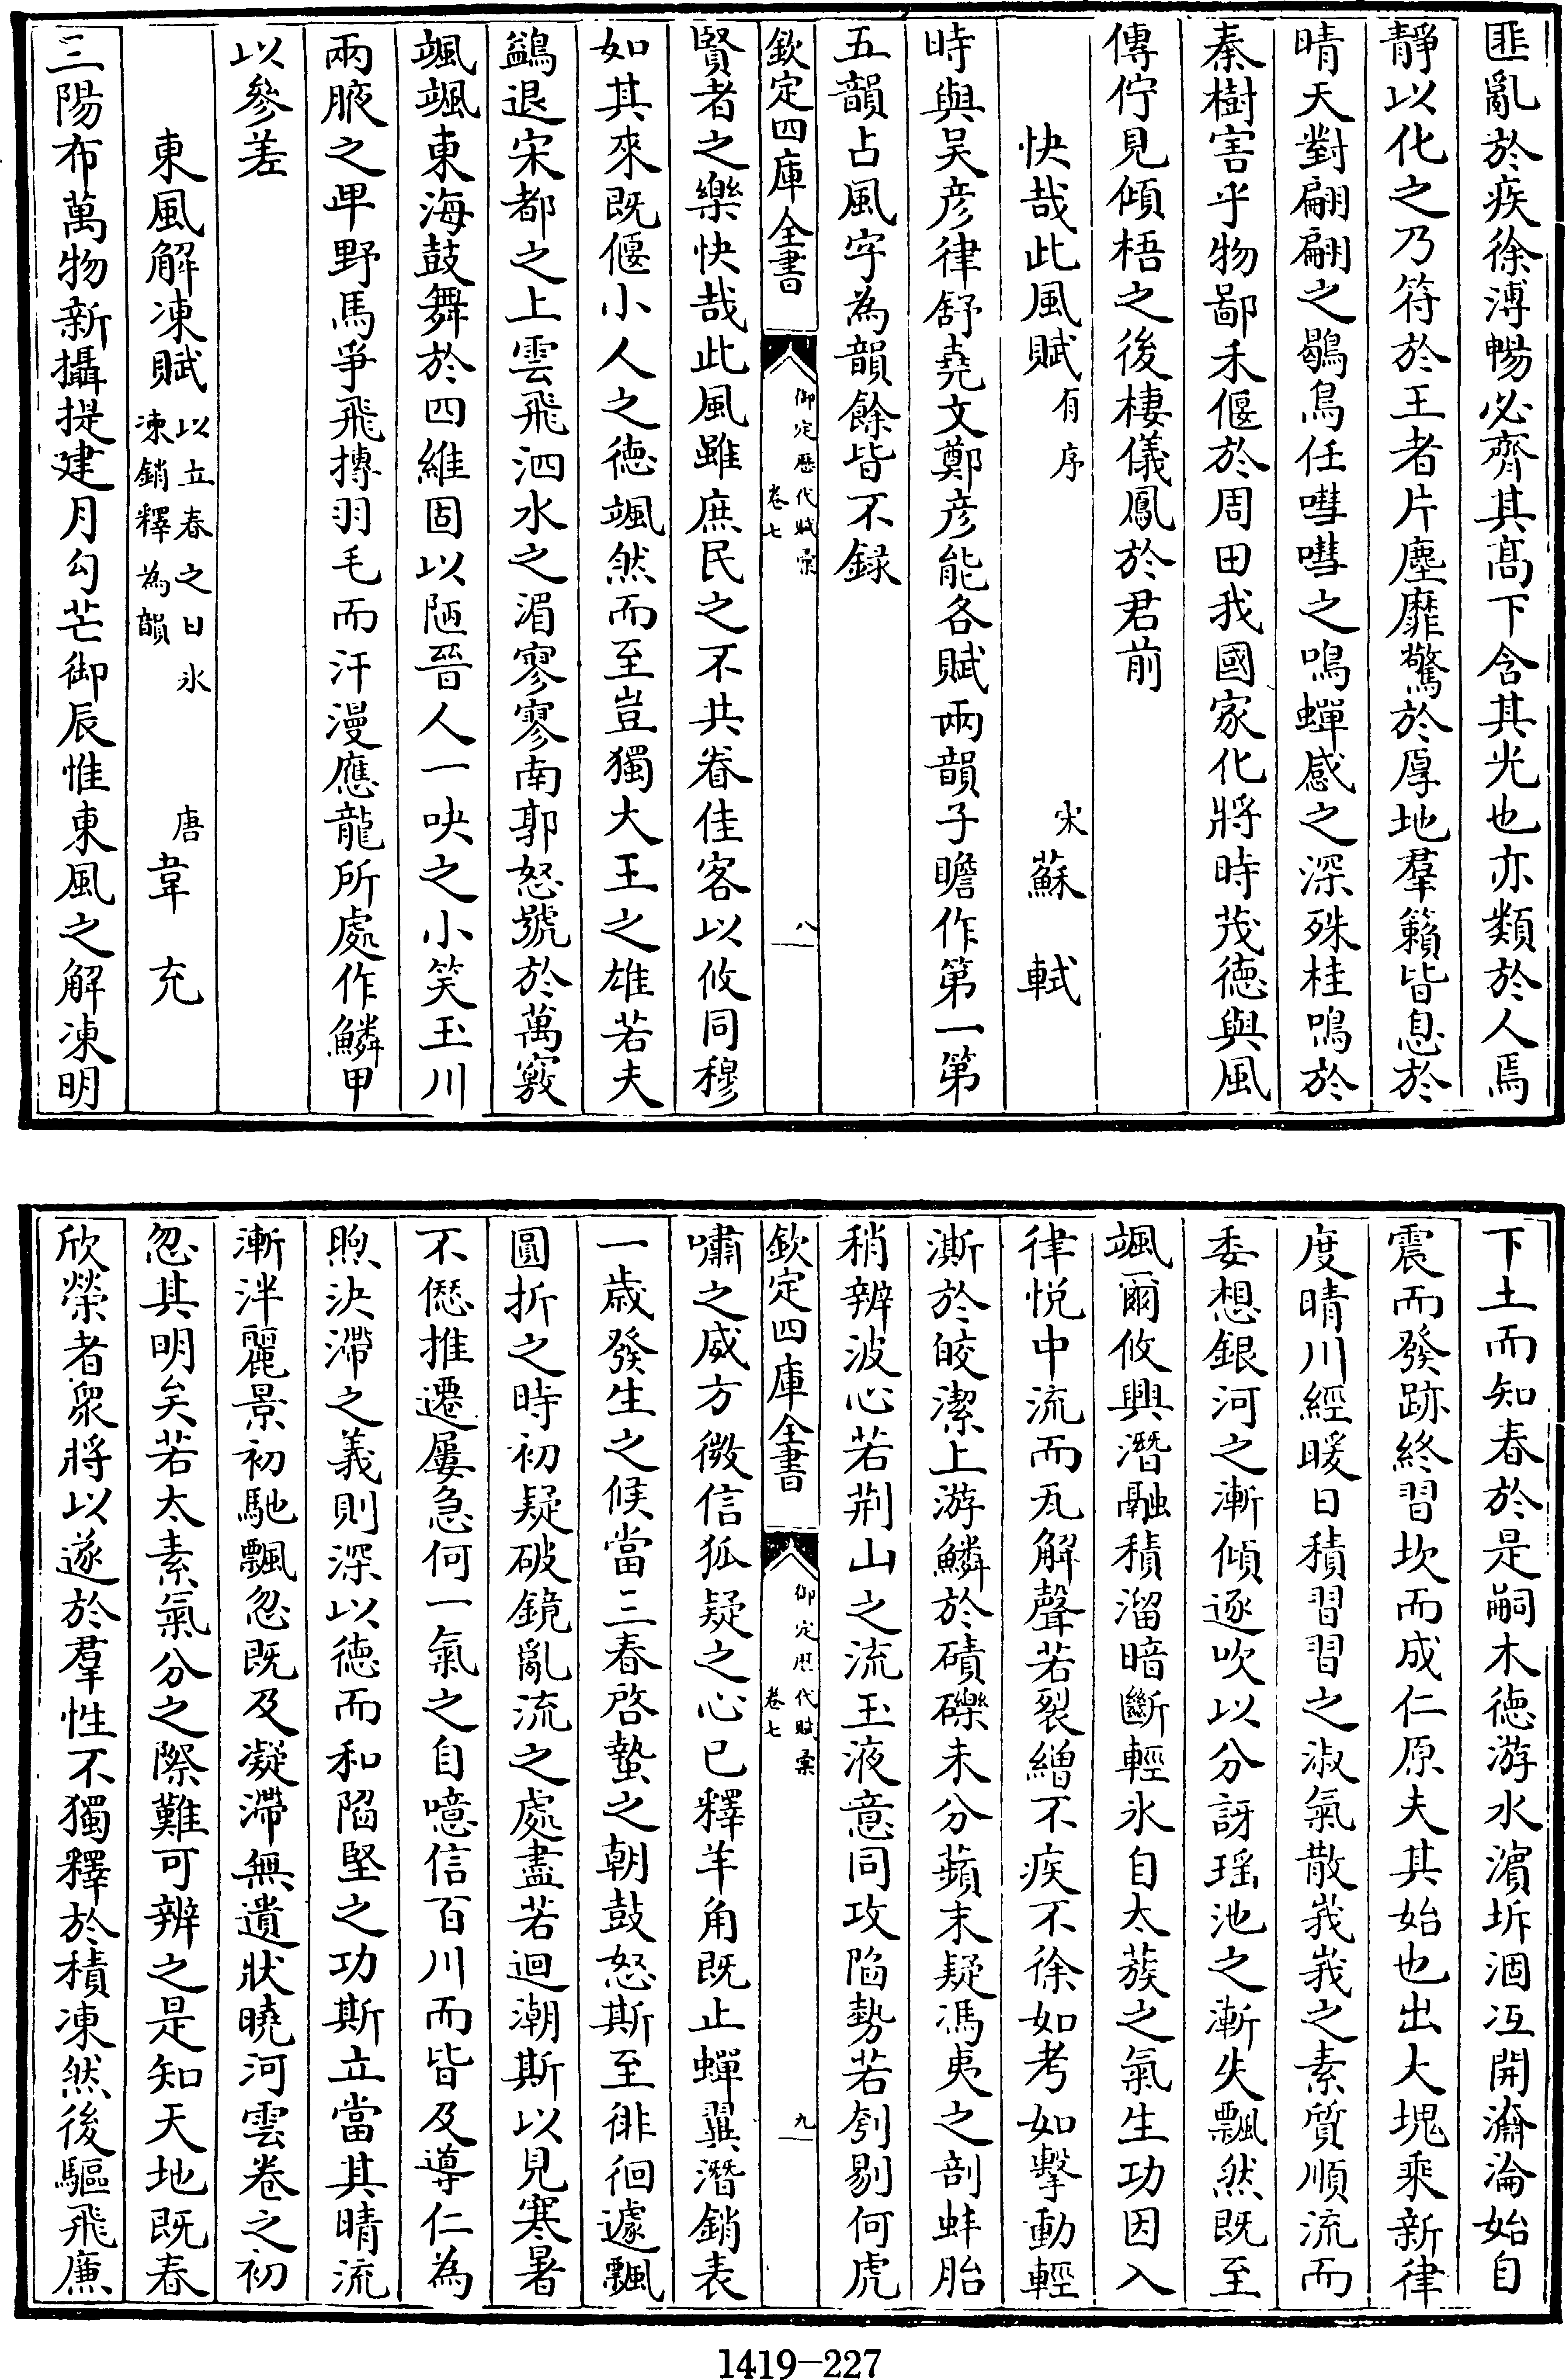 匪亂於疾徐溥暢必齊其髙下含其光也亦類於人焉
靜以化之乃符於王者片塵靡驚於厚地羣籟皆息於
晴天對翩翩之鷁鳥任嘒嘒之鳴蟬感之深殊桂鳴於
秦樹害乎物鄙禾偃於周田我國家化將時茂徳與風
傳佇見傾梧之後棲儀鳳於君前
快哉此風賦有序 宋蘇軾
時與吴彦律舒堯文鄭彦能各賦兩韻子瞻作第一第
五韻占風字為韻餘皆不録
欽定四庫全書 御定歴代賦彚 卷七 八
賢者之樂快哉此風雖庶民之不共眷佳客以攸同穆
如其來既偃小人之徳颯然而至豈獨大王之雄若夫
鷁退宋都之上雲飛泗水之湄寥寥南郭怒號於萬竅
颯颯東海鼓舞於四維固以陋晉人一吷之小笑玉川
兩腋之卑野馬爭飛摶羽毛而汗漫應龍所處作鱗甲
以參差
東風解凍賦以立春之日氷凍銷釋為韻 唐韋充
三陽布萬物新攝提建月勾芒御辰惟東風之解凍明
下土而知春於是嗣木徳游水濵坼涸冱開瀹淪始自
震而發跡終習坎而成仁原夫其始也出大塊乘新律
度晴川經暖日積習習之淑氣散峩峩之素質順流而
委想銀河之漸傾逐吹以分訝瑶池之漸失飄然既至
颯爾攸興潛融積溜暗斷輕氷自太蔟之氣生功因入
律悦中流而瓦解聲若裂繒不疾不徐如考如擊動輕
澌於皎潔上游鱗於磧礫未分蘋末疑馮夷之剖蚌胎
稍辨波心若荆山之流玉液意同攻陷勢若刳剔何虎
欽定四庫全書 御定歴代賦彚 卷七 九
嘯之威方微信狐疑之心已釋羊角既止蟬翼潛銷表
一歳發生之候當三春啓蟄之朝鼓怒斯至徘徊遽飄
圓折之時初疑破鏡亂流之處盡若迴潮斯以見寒暑
不愆推遷屢急何一氣之自噫信百川而皆及導仁為
煦決滯之義則深以徳而和陷堅之功斯立當其晴流
漸泮麗景初馳飄忽既及凝滯無遺狀曉河雲卷之初
忽其明矣若太素氣分之際難可辨之是知天地既春
欣榮者衆將以遂於羣性不獨釋於積凍然後驅飛廉
1419-227